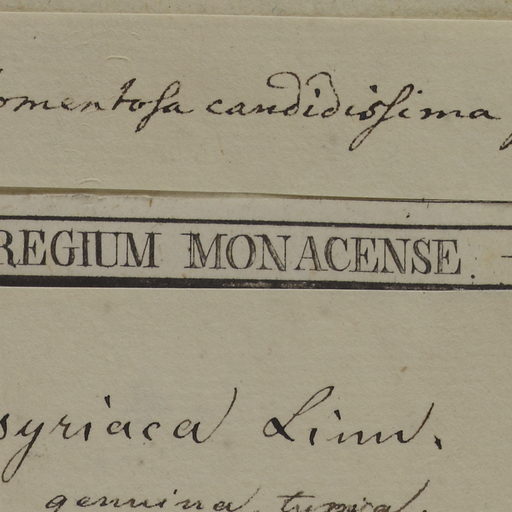 tomentosa candidissima
REGIUM MONACENSE.
syriaca Linn.
genuina, typica.